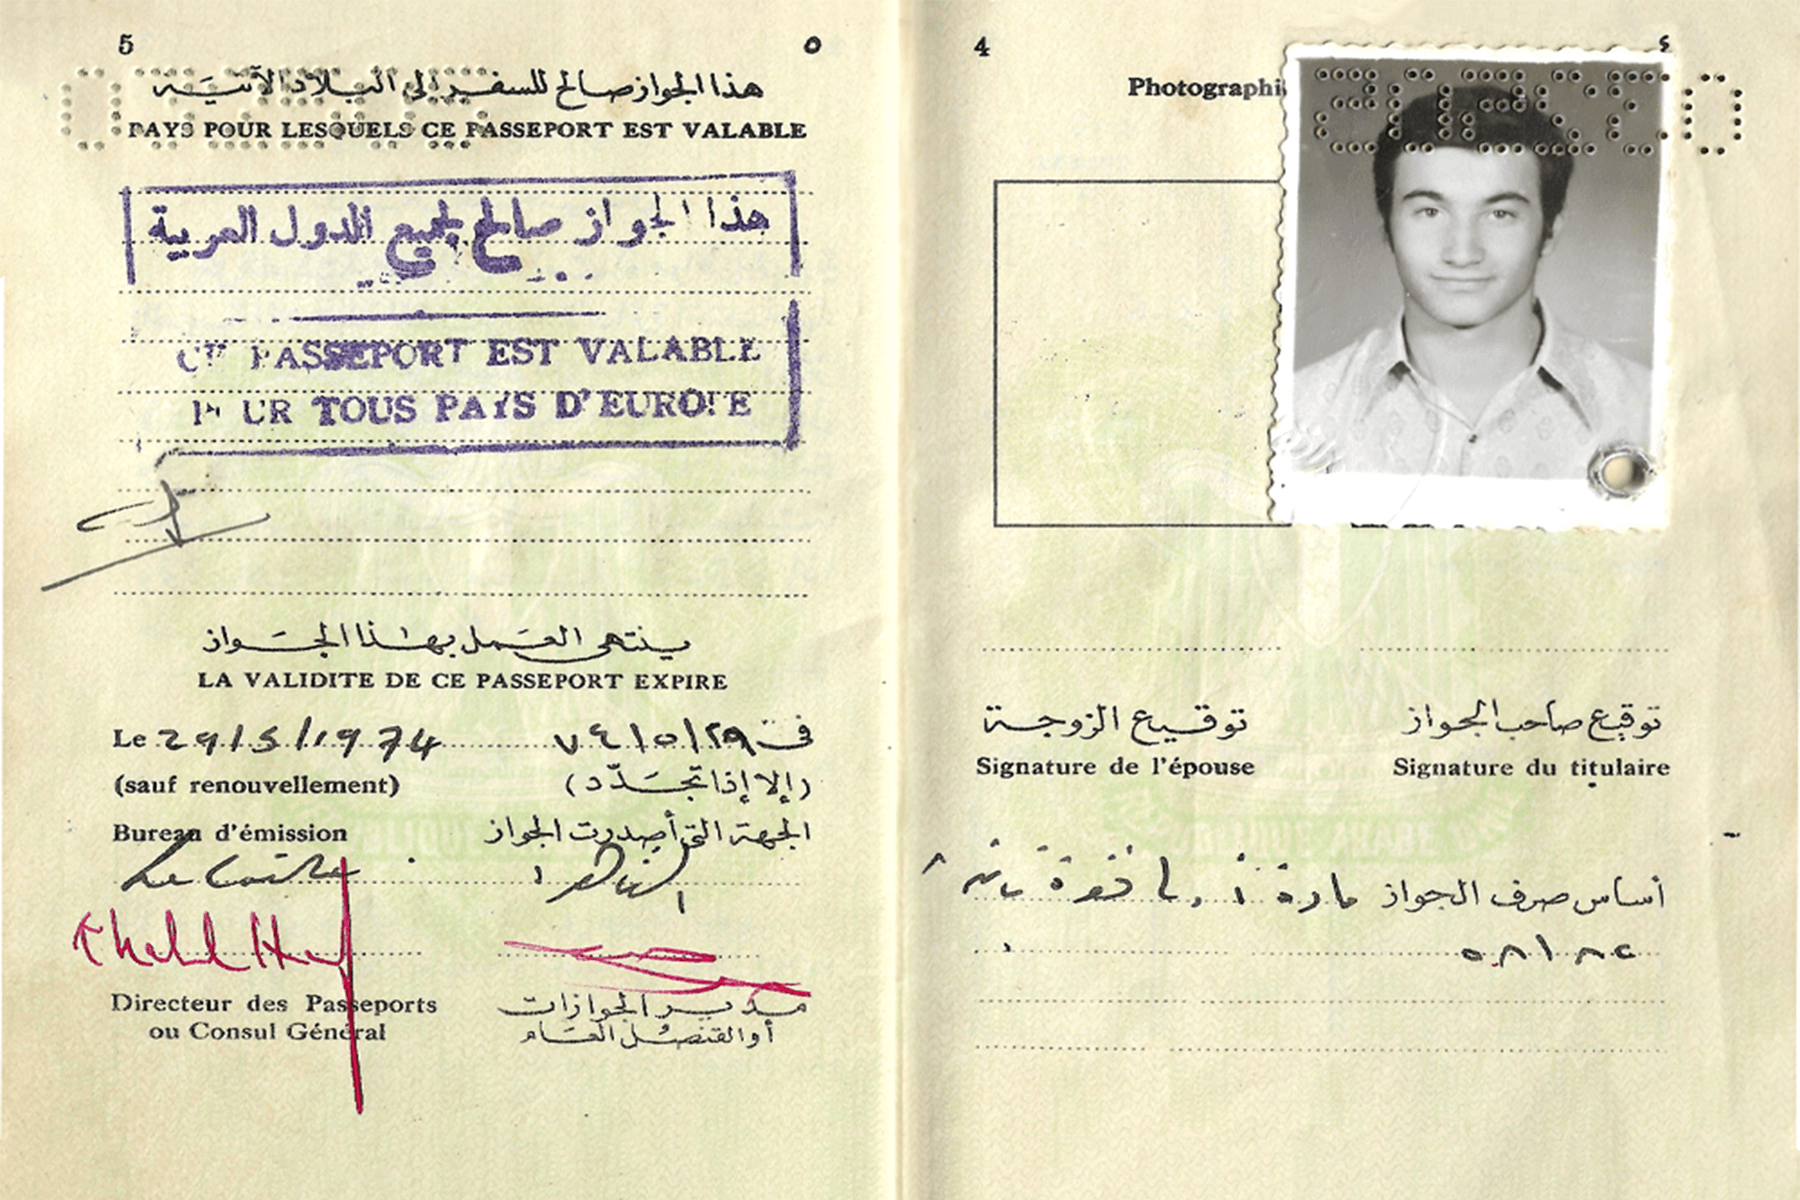 5
٥
هذا الجواز صالح للسفر إلى البلاد الآتية
PAYS POUR LESQUELS CE PASSEPORT EST VALABLE
هذا الجواز صالح لجميع الدول العربية
CE PASSEPORT EST VALABLE
POUR TOUS PAYS D'EUROPE
ينتهى العمل بهذا الجواز
LA VALIDITE DE CE PASSEPORT EXPIRE
Le 29/5/1974
فى ٧٤/٥/٢٩
(sauf renouvellement)
(إلا إذا تجدّد)
Bureau d'émission
الجهة التى أصدرت الجواز
Le Caire
Directeur des Passeports
مدير الجوازات
ou Consul Général
أو القنصل العام
4
٤
Photographi
توقيع الزوجة
توقيع صاحب الجواز
Signature de l'épouse
Signature du titulaire
أساس صرف الجواز